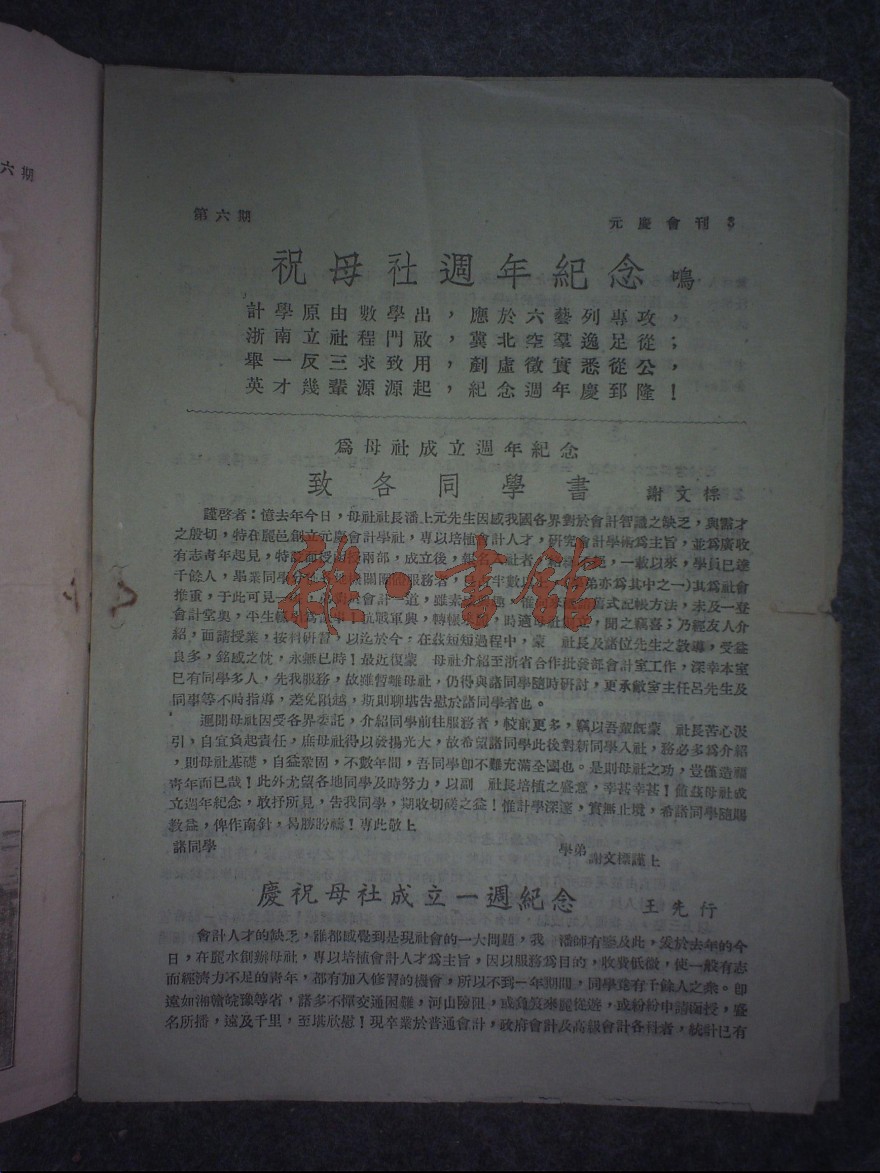 六期
第六期
元慶會刊 3
祝母社週年紀念 鳴
計學原由數學出，應於六藝列專攻，
浙南立社程門啟，冀北空羣逸足從；
舉一反三求致用，劃虛徵實悉從公，
英才幾輩源源起，紀念週年慶郅隆！
為母社成立週年紀念
致各同學書 謝文標
謹啓者：憶去年今日，母社社長潘上元先生因感我國各界對於會計智識之缺乏，與需才
之殷切，特在麗邑創立元慶會計學社，專以培植會計人才，研究會計學術為主旨，並為廣收
有志青年起見，特設面授函授兩部，成立後，報名入社者，一載以來，學員已達
千餘人，畢業同學 服務者， 亦為其中之一）其為社會
推重，于此可見一 會計一道，雖素 舊式記帳方法，未及一登
會計堂奧，平生 抗戰軍興，轉 時適母社 聞之竊喜；乃經友人介
紹，而請授業，按科研習，以迄於今。在茲短短過程中，蒙 社長及諸位先生之教導，受益
良多，銘感之忱，永無已時！最近復蒙 母社介紹至浙省合作批發部會計室工作，深幸本室
已有同學多人，先我服務，故雖暫離母社，仍得與諸同學隨時研討，更承敝室主任呂先生及
同事等不時指導，差免隕越，斯則聊堪告慰於諸同學者也。
邇聞母社因受各界委託，介紹同學前往服務者，較前更多，竊以吾輩既蒙 社長苦心汲
引，自宜負起責任，庶母社得以發揚光大，故希望諸同學此後對新同學入社，務必多為介紹
，則母社基礎，自益鞏固，不數年間，吾同學卽不難充滿全國也。是則母社之功，豈僅造福
青年而已哉！此外尤望各地同學及時努力，以副 社長培植之盛意，幸甚幸甚！值茲母社成
立週年紀念，敢抒所見，告我同學，期收切磋之益！惟計學深邃，實無止境，希諸同學隨賜
教益，俾作南針，曷勝盼禱！專此敬上
諸同學
學弟謝文標謹上
慶祝母社成立一週紀念 王先行
會計人才的缺乏，誰都感覺到是現社會的一大問題，我 潘師有鑒及此，爰於去年的今
日，在麗水創辦母社，專以培植會計人才為主旨，因以服務為目的，收費低微，使一般有志
而經濟力不足的青年，都有加入修習的機會，所以不到一年期間，同學竟有千餘人之衆。卽
遠如湘贛皖豫等省，諸多不憚交通困難，河山險阻，或負笈來麗從遊，或紛紛申請函授，聲
名所播，遠及千里，至堪欣慰！現卒業於普通會計，政府會計及高級會計各科者，統計已有
雜·書館